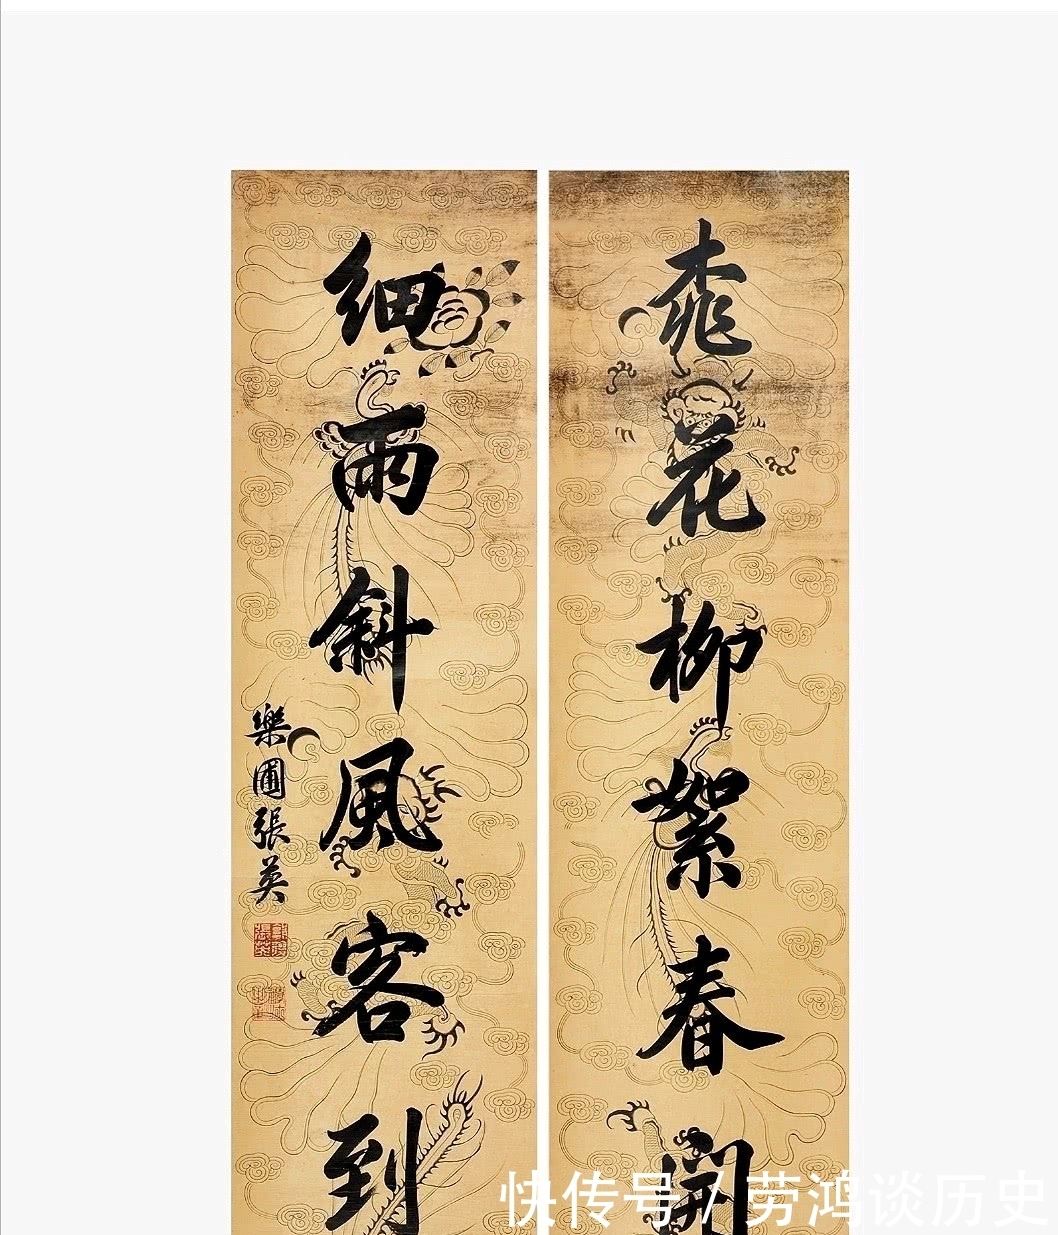 桃花柳絮春開
細雨斜風客到
樂圃張英
快传号 / 劳鸿谈历史